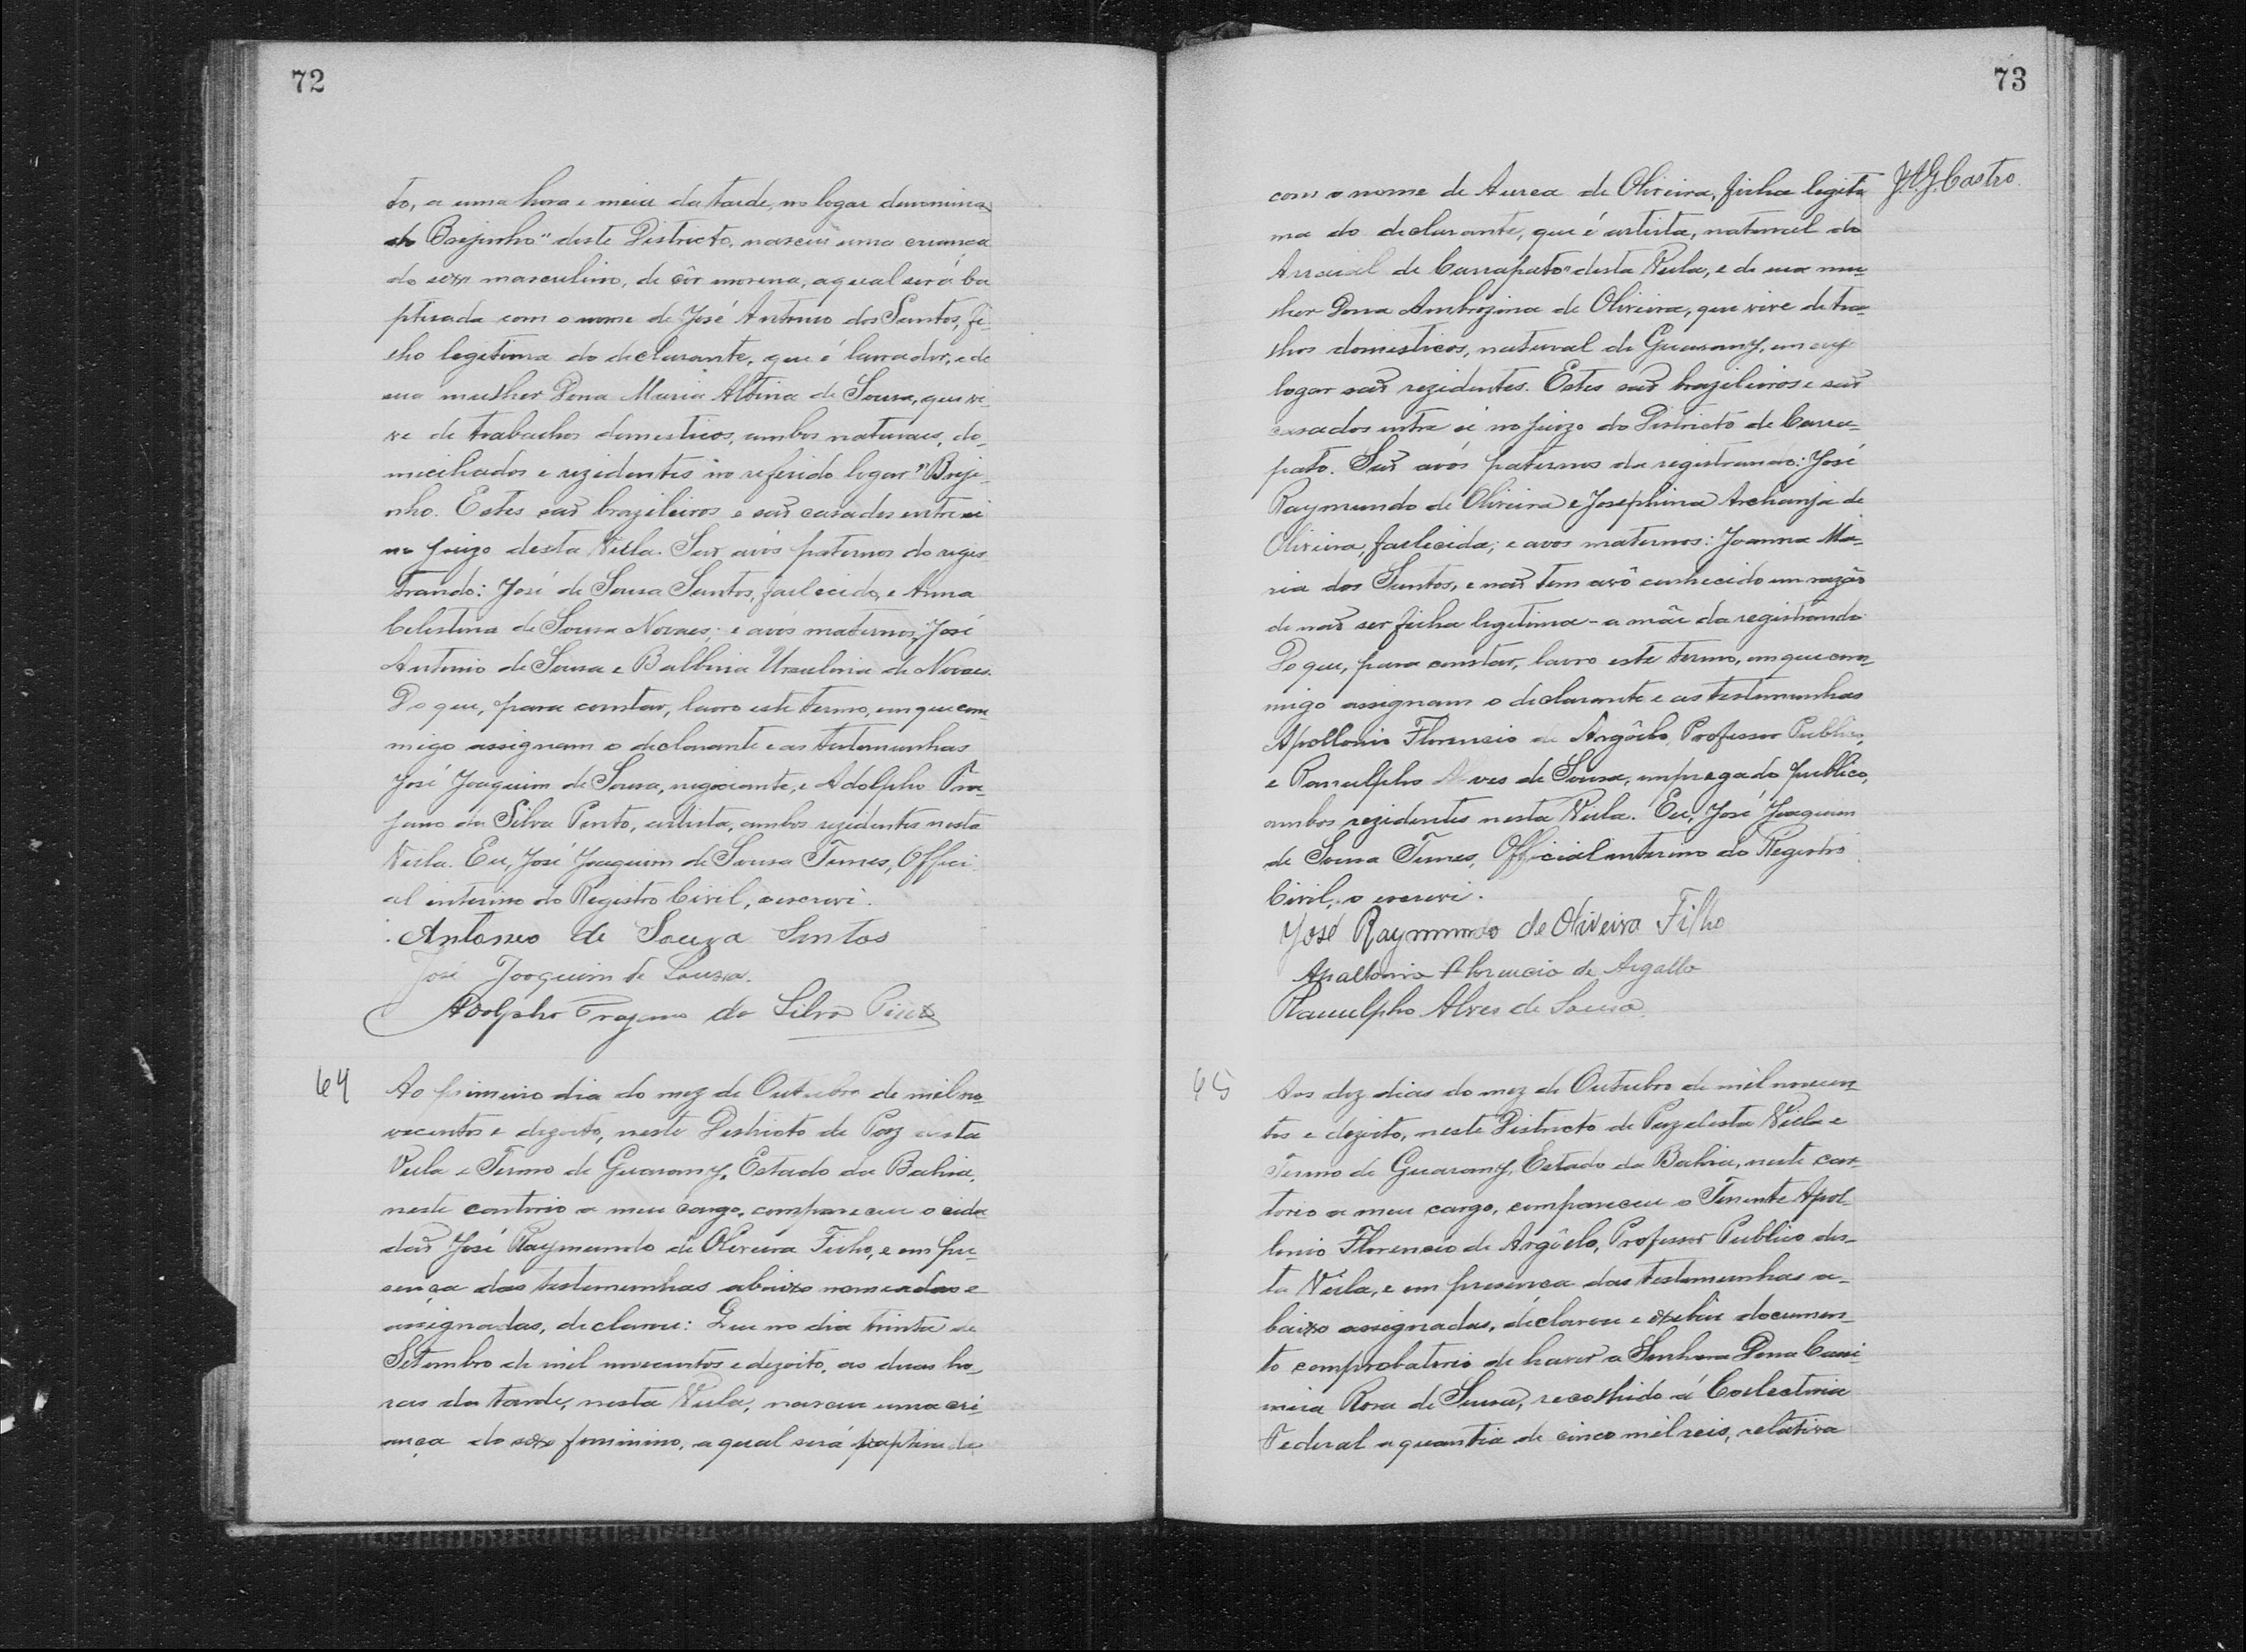 72
to, a uma hora e meia da tarde, no logar denomina
do "Brejinho" deste Districto, nasceu uma criança
do sexo masculino, de côr morena, a qual será ba
ptisada com o nome de José Antonio dos Santos, fi-
lho legitimo do declarante, que é lavrador, e de
sua mulher Dona Maria Altina de Sousa, que vi-
ve de trabalhos domesticos, ambos naturaes, do-
miciliados e rezidentes no referido logar "Breji-
nho. Estes são brazileiros e são casados entre si
no juizo desta Villa. São avós paternos do regis-
trando: José de Sousa Santos, fallecido, e Anna
Celestina de Sousa Novaes; e avós maternos, José
Antonio de Sousa e Balbina Urculina de Novaes.
Do que, para constar, lavro este termo, em que com-
migo assignam o declarante e as testemunhas
José Joaquim de Sousa, negociante, e Adolpho Tra-
jano da Silva Pinto, artista, ambos rezidentes nesta
Villa. Eu, José Joaquim de Sousa Tunes, Offici-
al interino do Registro Civil, o escrevi.
Antonio de Souza Santos
José Joaquim de Souza.
Adolpho Trajano da Silva Pinto
64
Ao primeiro dia do mez de Outubro de mil no-
vecentos e dezoito, neste Districto de Paz desta
Villa e Termo de Guarany, Estado da Bahia,
neste cartorio a meu cargo, compareceu o cida-
dão José Raymundo de Oliveira Filho, e em pre-
sença das testemunhas abaixo nomeadas e
assignadas, declarou: Que no dia trinta de
Setembro de mil novecentos e dezoito, as duas ho-
ras da tarde, nesta Villa, nasceu uma cri-
ança do sexo feminino, a qual será baptisada
73
com o nome de Aurea de Oliveira, filha legiti
J.A.G. Castro.
ma do declarante, que é artista, natural do
Arraial de "Carrapato" desta Villa, e de sua mu-
lher Dona Ambrozina de Oliveira, que vive de tra-
lhos domesticos, natural de Guarany, em cujo
logar são rezidentes. Estes são brazileiros e são
casados entre si no juizo do Districto de Carra-
pato. São avós paternos da registrando: José
Raymundo de Oliveira e Josephina Archanja de
Oliveira, fallecida; e avos maternos: Joanna Ma-
ria dos Santos, e não tem avô conhecido em razão
de não ser filha legitima - a mãe da registrando.
Do que, para constar, lavro este termo, em que com-
migo assignam o declarante e as testemunhas
Apollonio Florencio de Argôllo, Professor Publico,
e Ranulpho Alves de Sousa, empregado publico,
ambos rezidentes nesta Villa. Eu, José Joaquim
de Sousa Tunes, Official interino do Registro
Civil, o escrevi.
José Raymundo de Oliveira Filho
Apollonio Florencio de Argollo
Ranulpho Alves de Souza.
65
Aos dez dias do mez de Outubro de mil novecen-
tos e dezoito, neste Districto de Paz desta Villa e
Termo de Guarany, Estado da Bahia, neste car-
torio a meu cargo, compareceu o Tenente Apol-
lonio Florencio de Argôllo, Professor Publico des-
ta Villa, e em presença das testemunhas a-
baixo assignadas, declarou e exibiu documen-
to comprobatorio de haver a Senhora Dona Casi-
mira Rosa de Sousa, recolhido á Collectoria
Federal a quantia de cinco mil reis, relativa